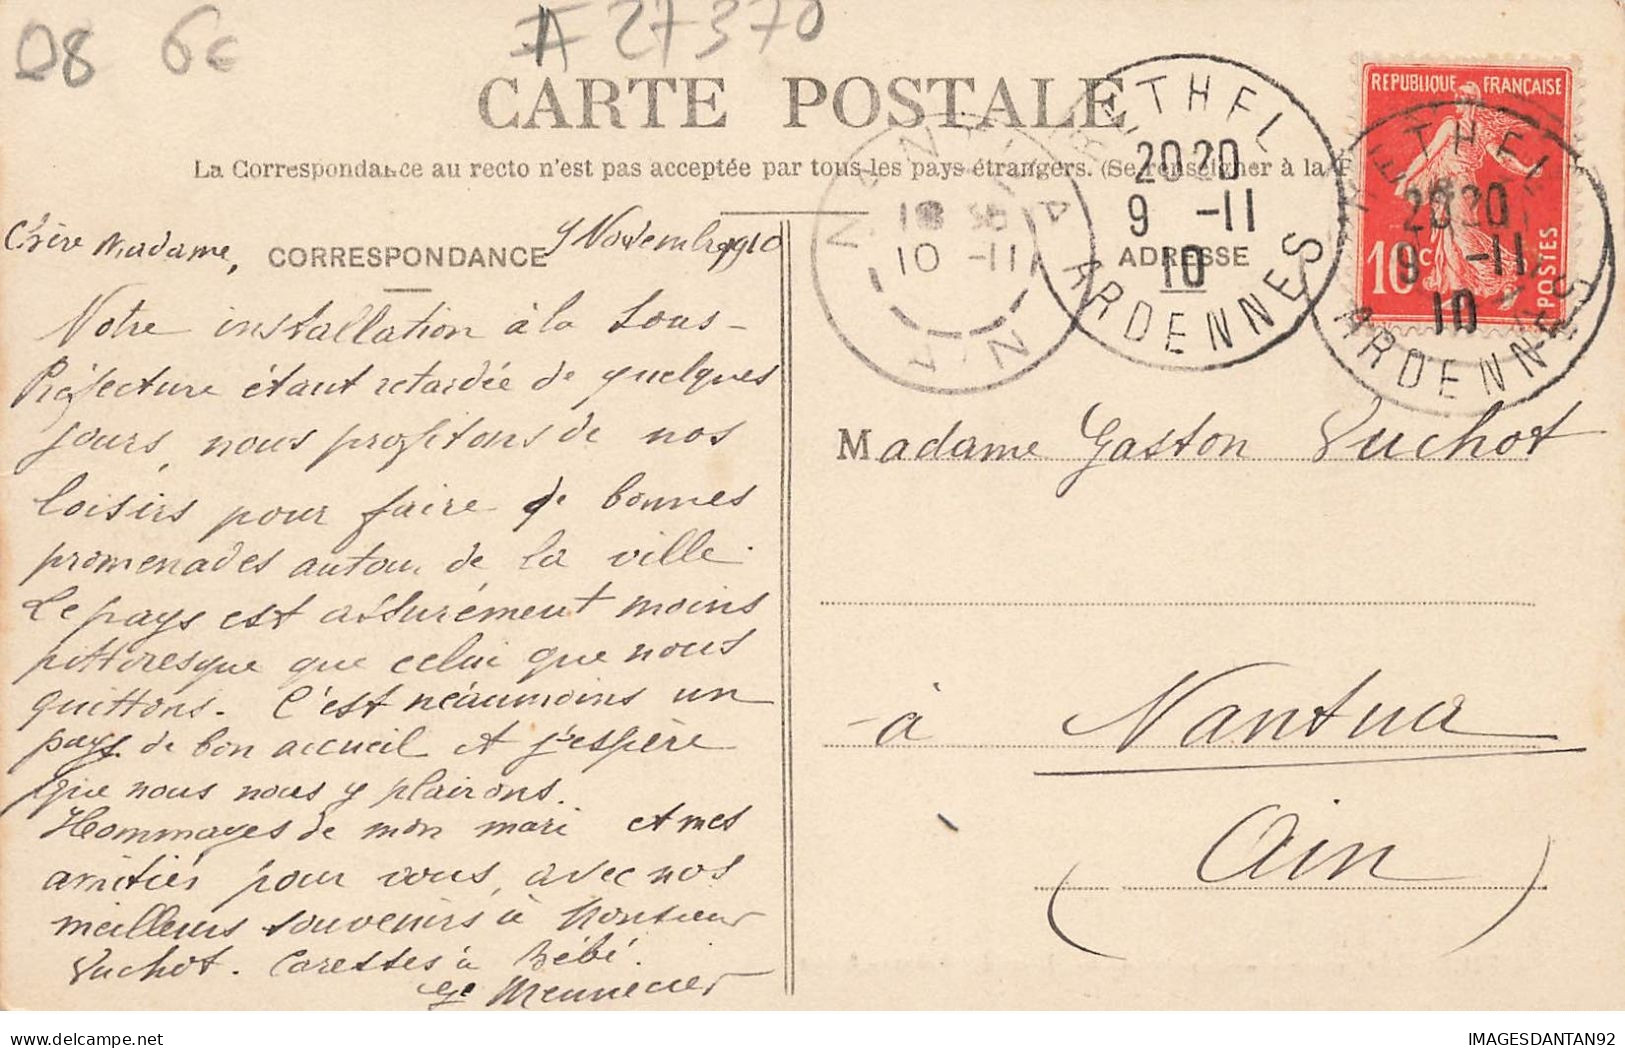 08 6€ # 27370
CARTE POSTALE
La Correspondance au recto n'est pas acceptée par tous les pays étrangers. (Se renseigner à la P
RETHEL
2020
9 -11
10
ARDENNES
REPUBLIQUE FRANÇAISE
10c
POSTES
RETHEL
2020
9 -11
10
ARDENNES
NANTUA
10 -11
AIN
CORRESPONDANCE
ADRESSE
Chère Madame, 9 Novembre 1910
Notre installation à la Sous-
Préfecture étant retardée de quelques
jours, nous profitons de nos
loisirs pour faire de bonnes
promenades autour de la ville.
Le pays est assurément moins
pittoresque que celui que nous
quittons. C'est néaumoins un
pays de bon accueil et j'espère
que nous nous y plairons.
Hommages de mon mari et mes
amitiés pour vous, avec nos
meilleurs souvenirs à Monsieur
Vuchot. Caresses à Bébé.
Mennecier
Madame Gaston Vuchot
à Nantua
(Ain)
IMAGESDANTAN92